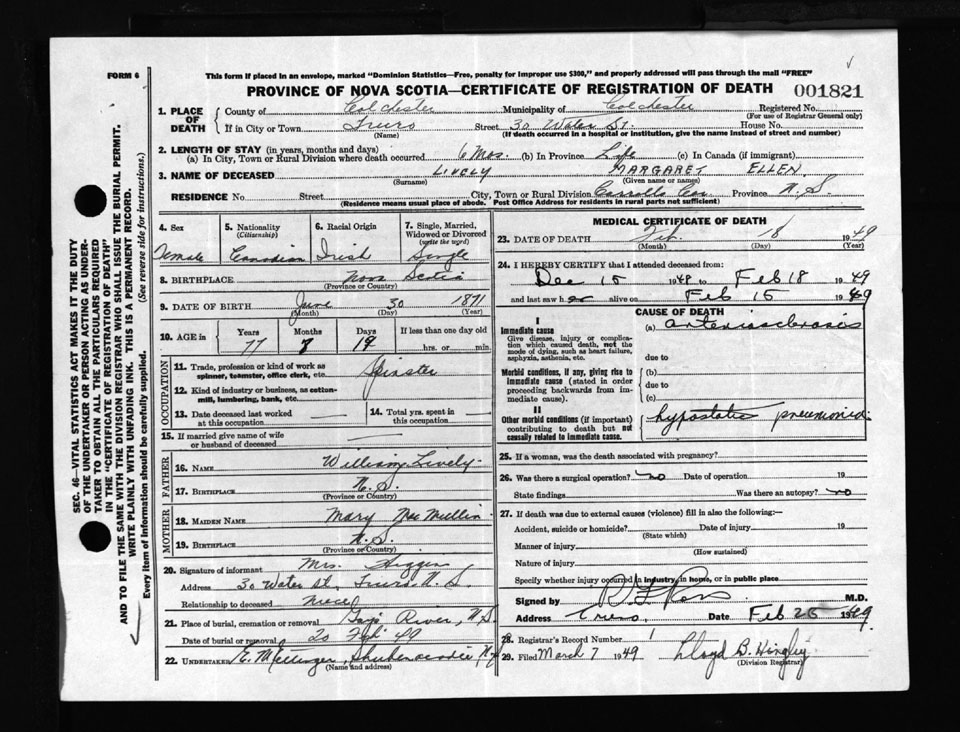 FORM 6
This form if placed in an envelope, marked "Dominion Statistics—Free, penalty for improper use $300," and properly addressed will pass through the mail "FREE"
PROVINCE OF NOVA SCOTIA—CERTIFICATE OF REGISTRATION OF DEATH 001821
1. PLACE OF DEATH
County of Colchester Municipality of Colchester Registered No.
(For use of Registrar General only)
If in City or Town Truro Street 30 Water St. House No.
(Name) (If death occurred in a hospital or institution, give the name instead of street and number)
2. LENGTH OF STAY (in years, months and days)
(a) In City, Town or Rural Division where death occurred 6 Mos. (b) In Province Life (c) In Canada (if immigrant)
3. NAME OF DECEASED LIVELY MARGARET ELLEN
(Surname) (Given name or names)
RESIDENCE No. Street City, Town or Rural Division Carrolls Cor. Province N.S.
(Residence means usual place of abode. Post Office Address for residents in rural parts not sufficient)
4. Sex Female
5. Nationality (Citizenship) Canadian
6. Racial Origin Irish
7. Single, Married, Widowed or Divorced (write the word) Single
8. BIRTHPLACE Nova Scotia
(Province or Country)
9. DATE OF BIRTH June 30 1871
(Month) (Day) (Year)
10. AGE in Years Months Days If less than one day old
77 19 hrs. or min.
OCCUPATION
11. Trade, profession or kind of work as spinner, teamster, office clerk, etc. Spinster
12. Kind of industry or business, as cotton-mill, lumbering, bank, etc.
13. Date deceased last worked at this occupation
14. Total yrs. spent in this occupation
15. If married give name of wife or husband of deceased
FATHER
16. NAME William Lively
17. BIRTHPLACE N.S.
(Province or Country)
MOTHER
18. MAIDEN NAME Mary
19. BIRTHPLACE N.S.
(Province or Country)
20. Signature of informant Mrs.
Address 30 Water St. Truro N.S.
Relationship to deceased niece
21. Place of burial, cremation or removal Gays River, N.S.
Date of burial or removal 20 Feb 49
22. UNDERTAKER E. Shubenacadie N.S.
(Name and address)
MEDICAL CERTIFICATE OF DEATH
23. DATE OF DEATH Feb. 18 1949
(Month) (Day) (Year)
24. I HEREBY CERTIFY that I attended deceased from:
Dec 15 1948 to Feb 18 1949
and last saw her alive on Feb 15 1949
CAUSE OF DEATH
I
Immediate cause
Give disease, injury or complication which caused death, not the mode of dying, such as heart failure, asphyxia, asthenia, etc.
(a) arteriosclerosis
due to
Morbid conditions, if any, giving rise to immediate cause (stated in order proceeding backwards from immediate cause).
(b)
due to
(c)
II
Other morbid conditions (if important) contributing to death but not causally related to immediate cause.
hypostatic pneumonia
25. If a woman, was the death associated with pregnancy?
26. Was there a surgical operation? no Date of operation 19
State findings Was there an autopsy? no
27. If death was due to external causes (violence) fill in also the following:—
Accident, suicide or homicide? Date of injury 19
(State which)
Manner of injury
(How sustained)
Nature of injury
Specify whether injury occurred in industry, in home, or in public place
Signed by M.D.
Address Truro, Date Feb 25 1949
28. Registrar's Record Number 1
29. Filed March 7 1949 Lloyd B. Hingley
(Division Registrar)
SEC. 46—VITAL STATISTICS ACT MAKES IT THE DUTY
OF THE UNDERTAKER OR PERSON ACTING AS UNDER-
TAKER TO OBTAIN ALL THE PARTICULARS REQUIRED
IN THE "CERTIFICATE OF REGISTRATION OF DEATH"
AND TO FILE THE SAME WITH THE DIVISION REGISTRAR WHO SHALL ISSUE THE BURIAL PERMIT.
WRITE PLAINLY WITH UNFADING INK. THIS IS A PERMANENT RECORD.
Every item of information should be carefully supplied. (See reverse side for instructions.)